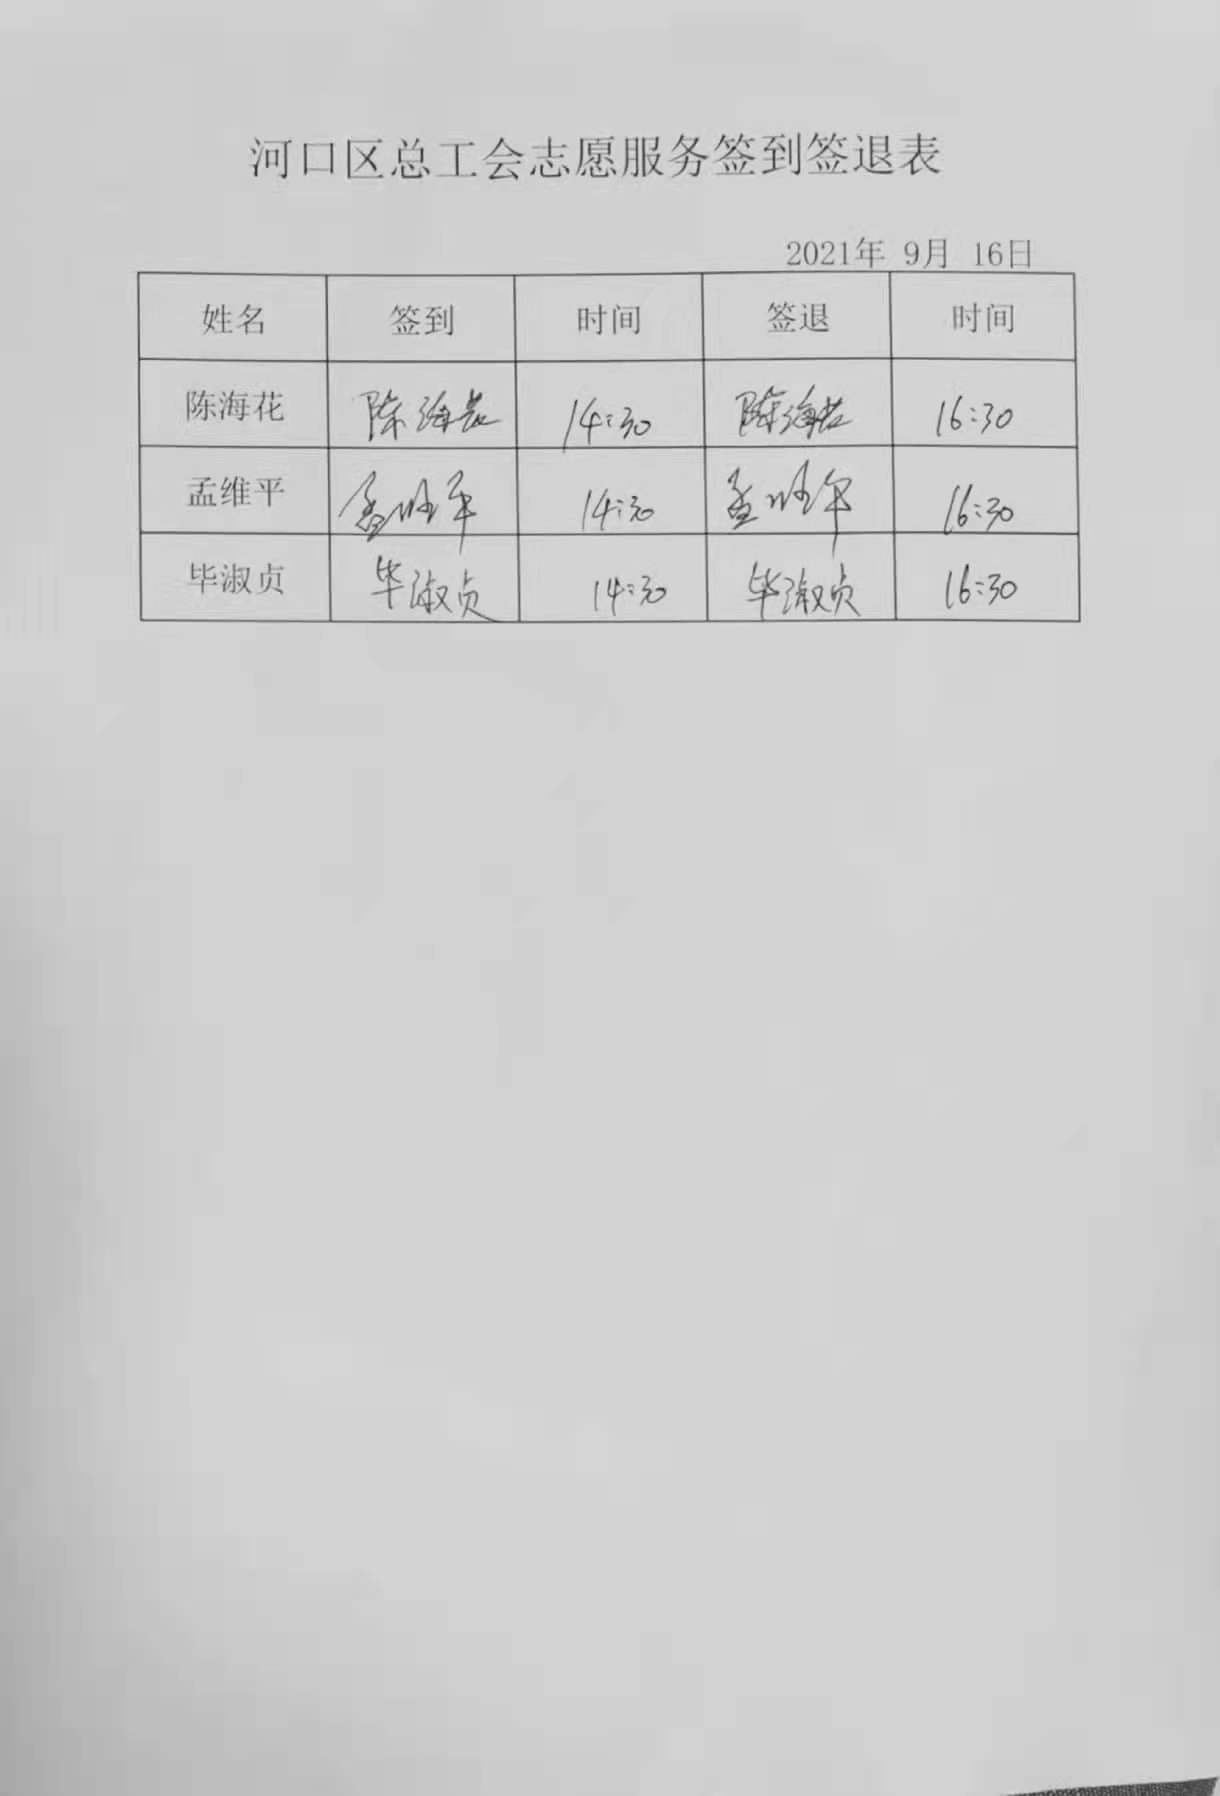 河口区总工会志愿服务签到签退表
2021年 9月 16日
姓名 签到 时间 签退 时间
陈海花 陈海花 14:30 陈海花 16:30
孟维平 孟维平 14:30 孟维平 16:30
毕淑贞 毕淑贞 14:30 毕淑贞 16:30